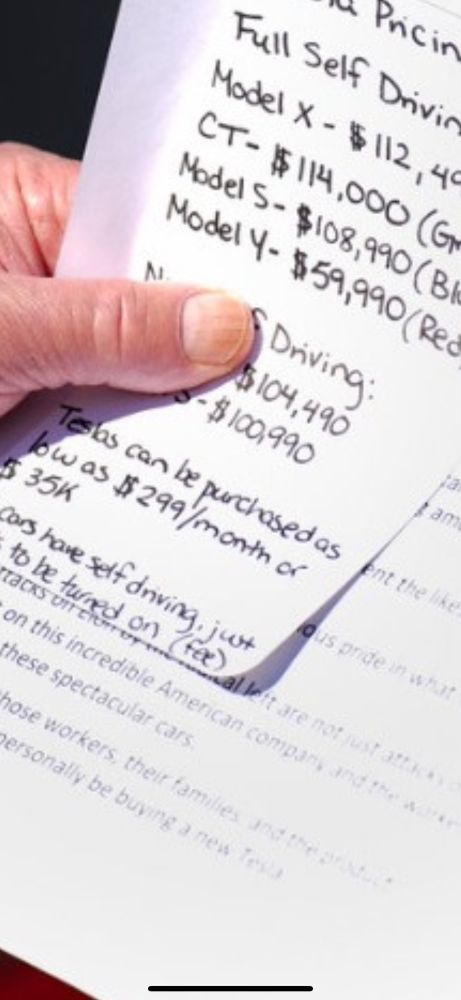 Pricin
Full Self Drivin
Model X - $112,49
CT- $114,000 (Gr
Model S- $108,990 (Blu
Model Y- $59,990 (Red
Driving:
$104,490
S -$100,990
Teslas can be purchased as
low as $299/month or
$ 35K
cars have self driving, just
s to be turned on (fee)
ent the likes
ious pride in what
ttacks on Elon by the radical left are not just attacks o
on this incredible American company and the worke
these spectacular cars.
hose workers, their families, and the product
personally be buying a new Tesla